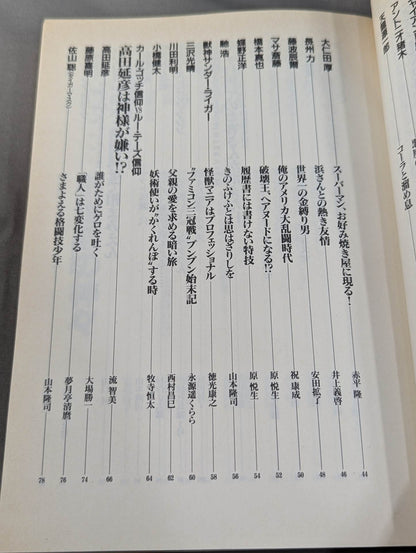 アントニオ猪木
コーラと溜め息
大仁田 厚
スーパーマン、お好み焼き屋に現る!
赤平 隆
44
長州 力
浜さんとの熱き友情
井上義啓
46
藤波辰爾
世界一の金縛り男
安田拡了
48
マサ斎藤
俺のアメリカ大乱闘時代
祝 康成
50
橋本真也
破壊王、ヘアヌードになる!?
原 悦生
52
蝶野正洋
履歴書には書けない特技
原 悦生
54
馳 浩
きのふけふとは思はざりしを
山本隆司
56
獣神サンダー・ライガー
怪獣マニアはプロフェッショナル
徳光康之
58
三沢光晴
"ファミコン三冠戦"プンプン始末記
永源遥くらら
60
川田利明
父親の愛を求める暗い旅
西村昌巳
62
小橋健太
妖術使いが"かくれんぼ"する時
牧寺恒太
64
カール・ゴッチ信仰VSルー・テーズ信仰
高田延彦は神様が嫌い!?
流 智美
66
高田延彦
誰がためにゲロを吐く
大場勝一
74
藤原喜明
「職人」は七変化する
夢月亭清麿
76
佐山 聡(タイガーマスク)
さまよえる格闘技少年
山本隆司
78